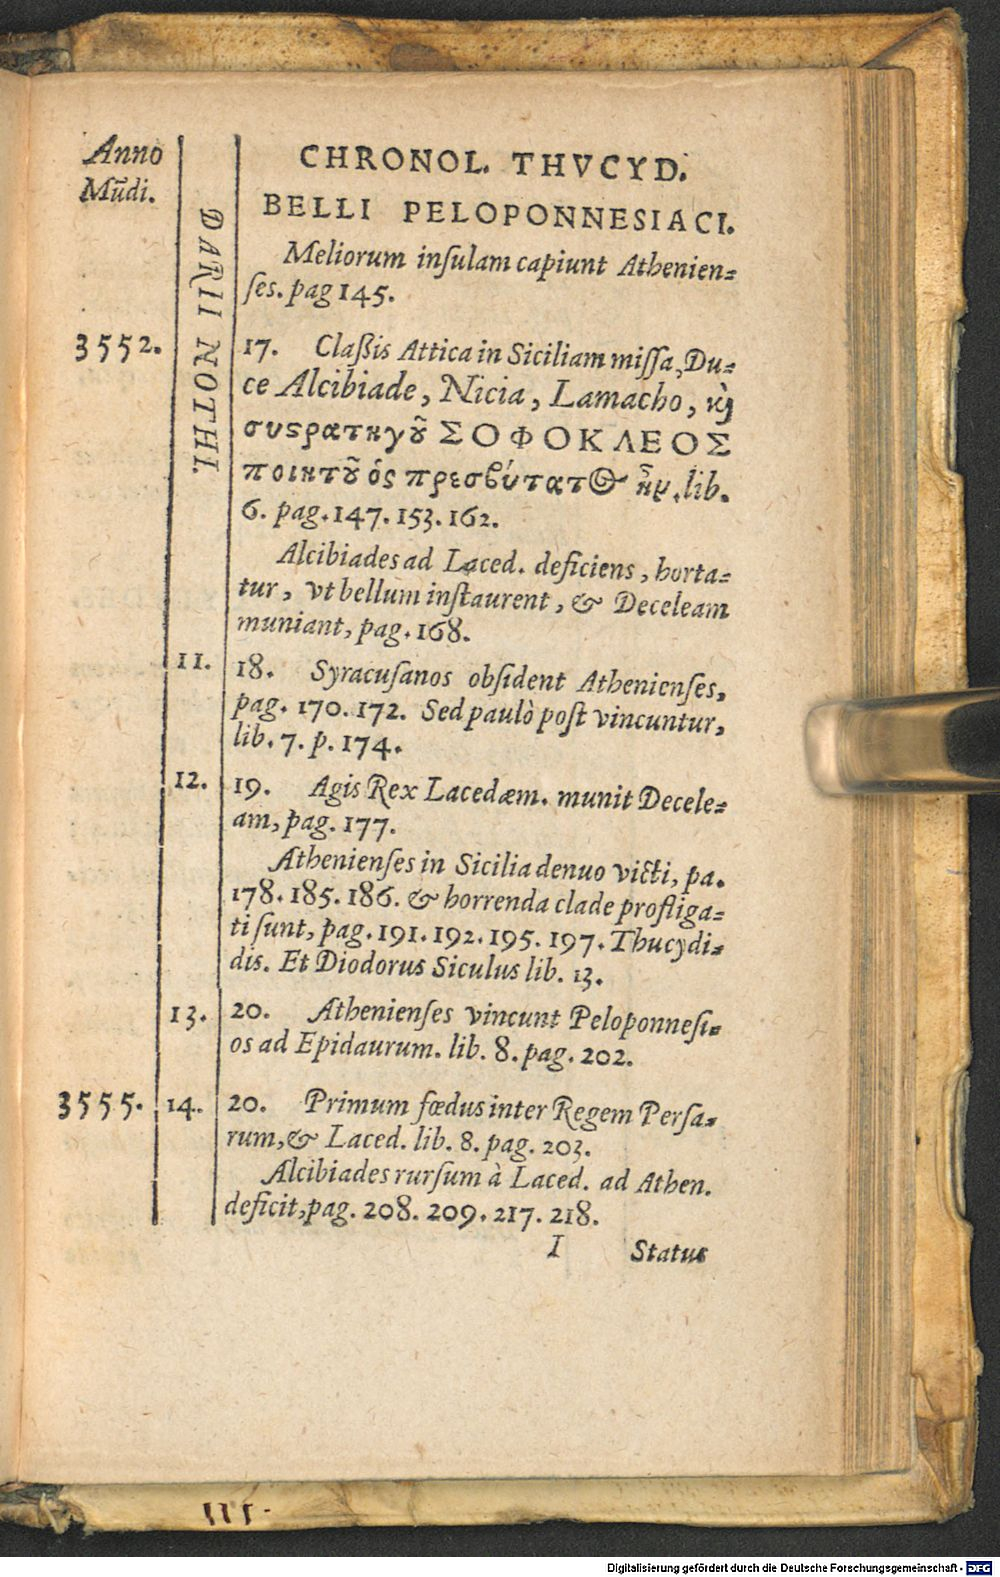 Anno
Mūdi.
DARII NOTHI.
CHRONOL. THVCYD.
BELLI PELOPONNESIACI.
Meliorum inſulam capiunt Athenien-
ſes. pag 145.
3552.
17. Claßis Attica in Siciliam miſſa, Du-
ce Alcibiade, Nicia, Lamacho, ϗ̀
συϛρατηγοῦ ΣΟΦΟΚΛΕΟΣ
ποιητοῦ ὁς πρεσβύτατος ἦν, lib.
6. pag. 147. 153. 162.
Alcibiades ad Laced. deficiens, horta-
tur, vt bellum inſtaurent, & Deceleam
muniant, pag. 168.
11. 18. Syracuſanos obſident Athenienſes,
pag. 170. 172. Sed paulò poſt vincuntur,
lib. 7. p. 174.
12. 19. Agis Rex Lacedæm. munit Decele-
am, pag. 177.
Athenienſes in Sicilia denuo victi, pa.
178. 185. 186. & horrenda clade profliga-
ti ſunt, pag. 191. 192. 195. 197. Thucydi-
dis. Et Diodorus Siculus lib. 13.
13. 20. Athenienſes vincunt Peloponneſi-
os ad Epidaurum. lib. 8. pag. 202.
3555. 14. 20. Primum fœdus inter Regem Perſa-
rum, & Laced. lib. 8. pag. 203.
Alcibiades rurſum à Laced. ad Athen.
deficit, pag. 208. 209. 217. 218.
I Status
Digitalisierung gefördert durch die Deutsche Forschungsgemeinschaft - DFG